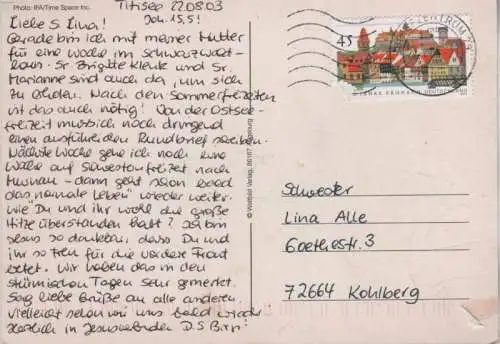 Photo: IFA/Time Space Inc.
Titisee 22.08.03
Joh. 15,5!
Liebe S. Lina!
Gerade bin ich mit meiner Mutter
für eine Woche im Schwarzwald-
haus. Sr. Brigitte Klenk und Sr.
Marianne sind auch da, um sich
zu erholen. Nach den Sommerfreizeiten
ist das auch nötig! Von der Ostsee-
freizeit muss ich noch dringend
einen ausführlichen Rundbrief schreiben.
Nächste Woche gehe ich noch eine
Woche auf Silvestonfreizeit nach
Murnau - dann geht schon bald
das "normale Leben" wieder weiter.
Wie Du und ihr wohl die große
Hitze überstanden habt? Ich bin
Jesus so dankbar, dass Du und
ihr so treu für die vordere Front
betet. Wir haben das in den
stürmischen Tagen sehr gemerkt.
Sag liebe Grüße an alle anderen
vielleicht sehen wir uns bald wieder
Herzlich in Jesus verbunden D. S. Birgit
© Weltbild Verlag, 86167 Augsburg
45
ZENTRUM
Schwester
Lina Alle
Goethestr. 3
72664 Kohlberg